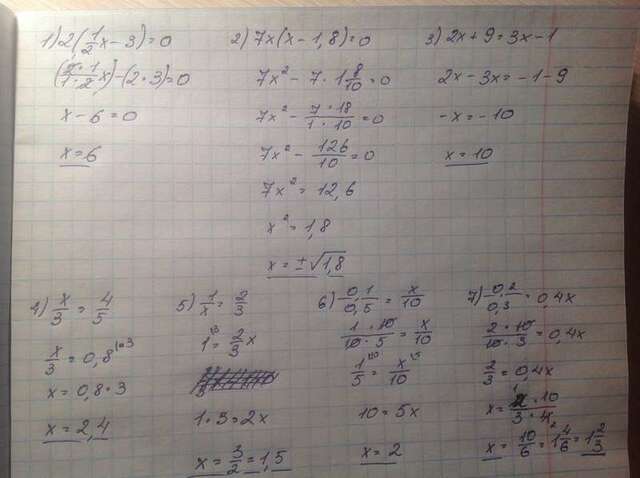 1) 2(1/2x - 3) = 0
(2·1/1·2 x) - (2·3) = 0
x - 6 = 0
x = 6
2) 7x(x - 1,8) = 0
7x² - 7 · 1 8/10 = 0
7x² - 7·18/1·10 = 0
7x² - 126/10 = 0
7x² = 12,6
x² = 1,8
x = ±√1,8
3) 2x + 9 = 3x - 1
2x - 3x = -1 - 9
-x = -10
x = 10
4) x/3 = 4/5
x/3 = 0,8 |·3
x = 0,8 · 3
x = 2,4
5) 1/x = 2/3
1 = 2/3 x
1·3 = 2x
x = 3/2 = 1,5
6) 0,1/0,5 = x/10
1·10/10·5 = x/10
1/5 = x/10
10 = 5x
x = 2
7) 0,2/0,3 = 0,4x
2·10/10·3 = 0,4x
2/3 = 0,4x
x = 2·10/3·4
x = 10/6 = 1 4/6 = 1 2/3